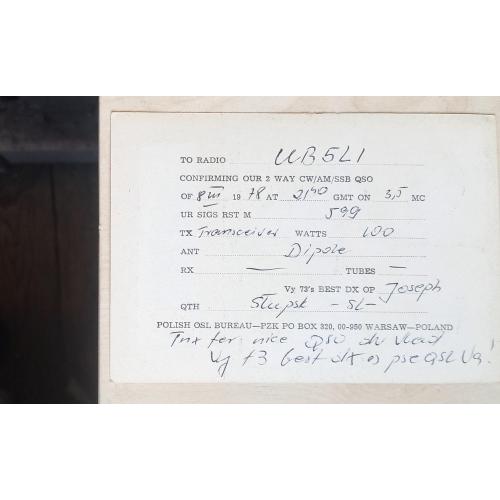 TO RADIO UB5LI
CONFIRMING OUR 2 WAY CW/AM/SSB QSO
OF 8 III 1978 AT 2140 GMT ON 3,5 MC
UR SIGS RST M 599
TX Transceiver WATTS 100
ANT Dipole
RX — TUBES —
Vy 73's BEST DX OP Joseph
QTH Słupsk -SL-
POLISH QSL BUREAU—PZK PO BOX 320, 00-950 WARSAW—POLAND
Tnx for nice QSO dr Vlad
Vy 73 best dx es pse QSL Via!